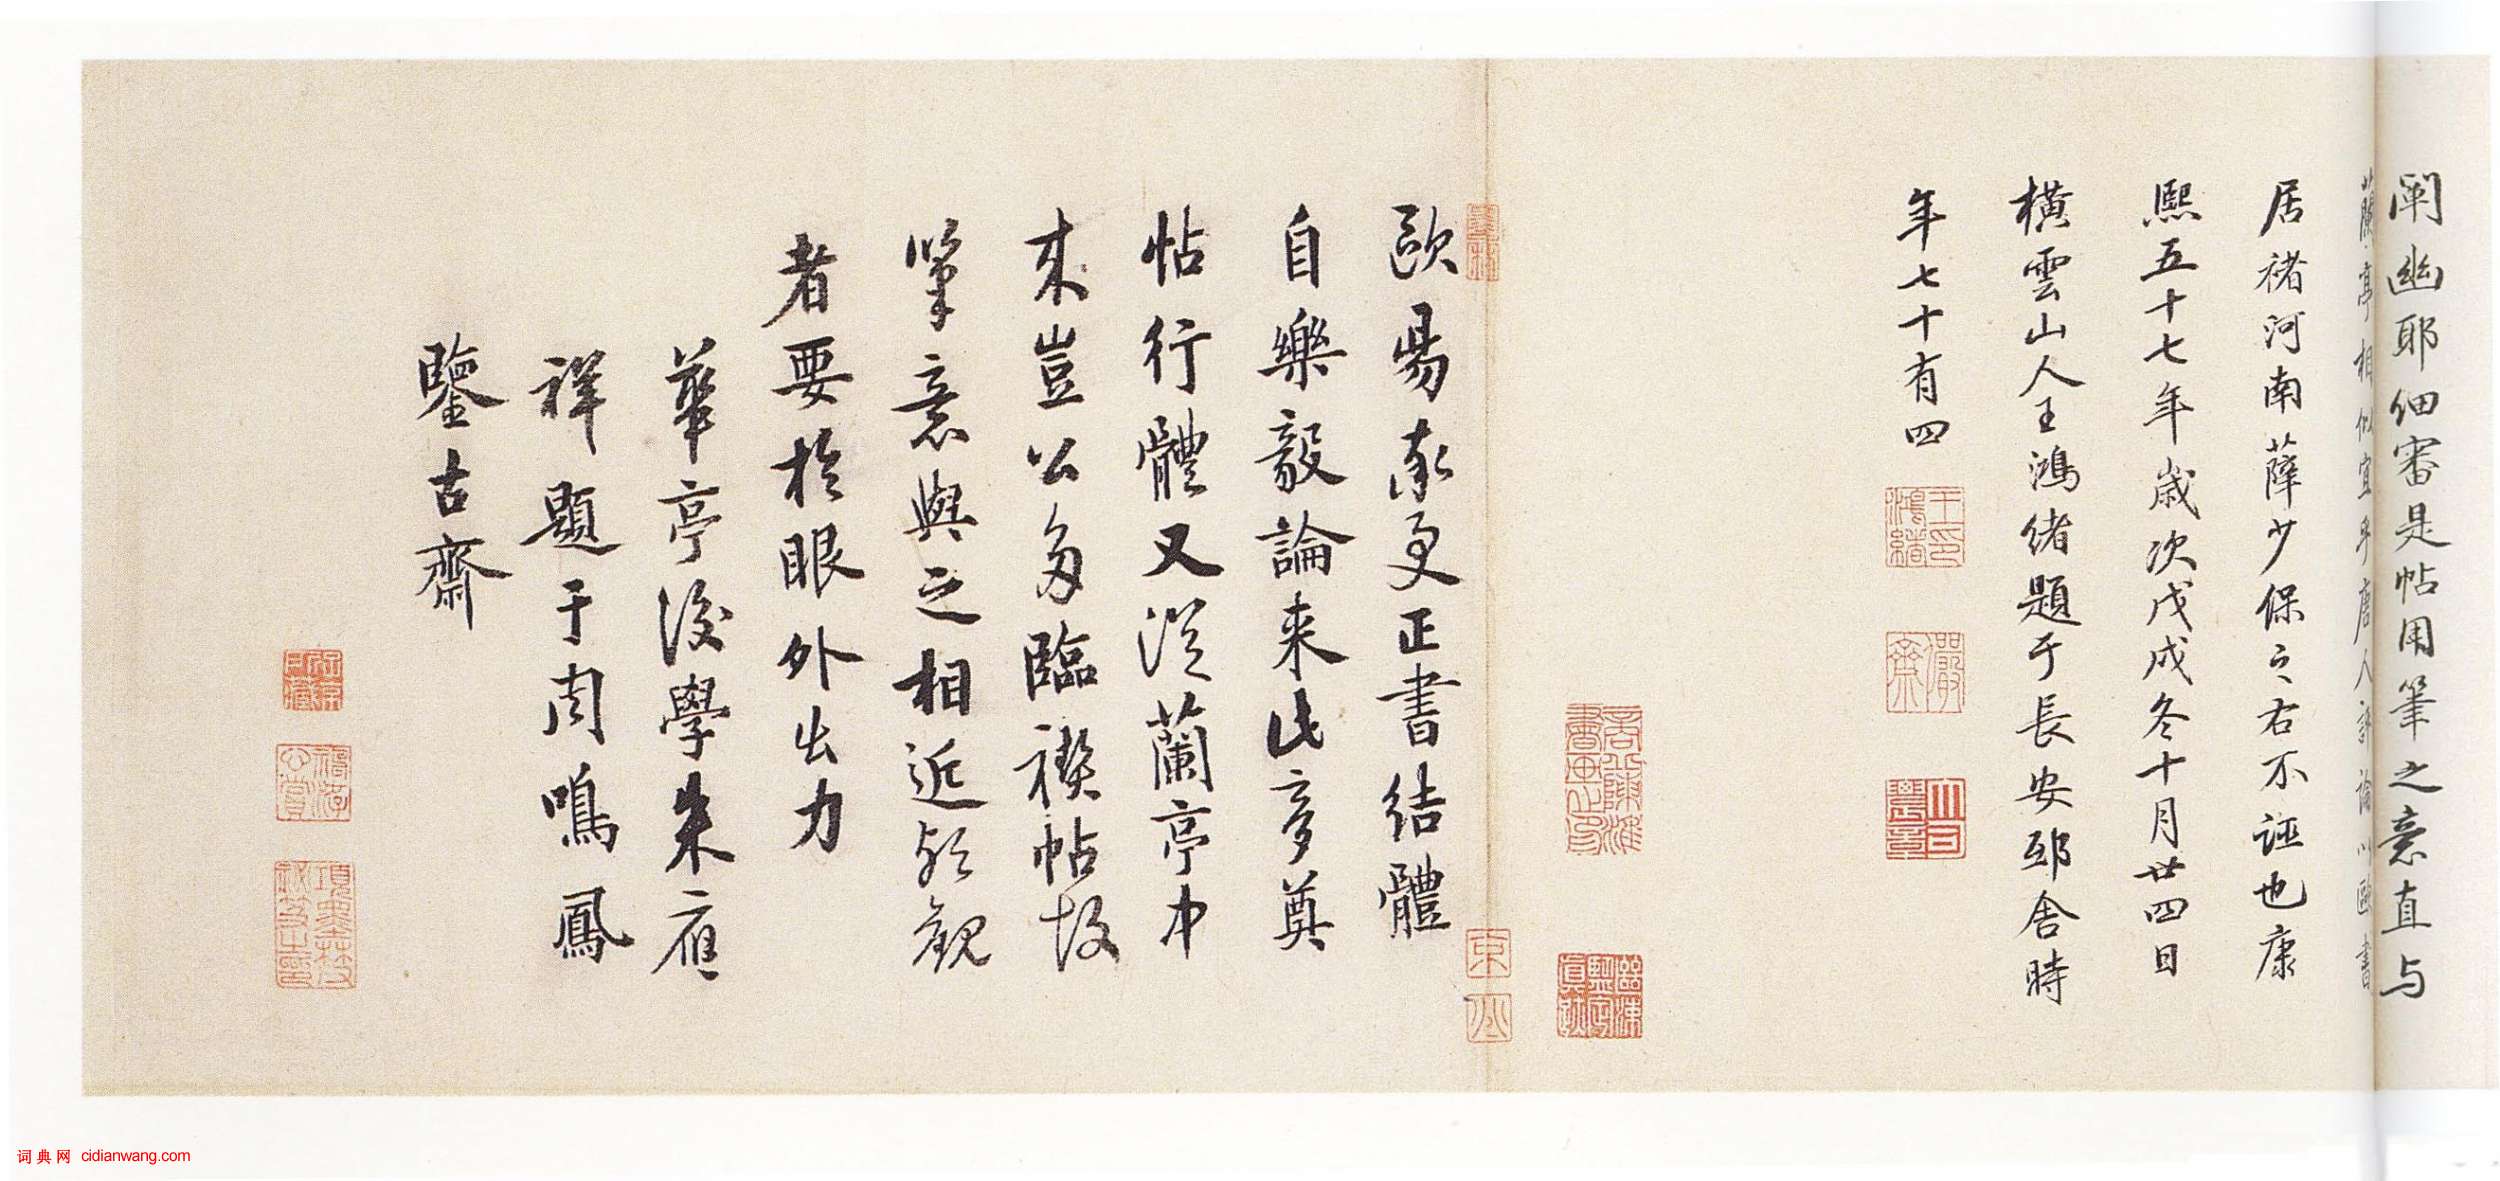 闡幽耶細審是帖用筆之意直与
蘭亭相似宜乎唐人評論以歐書
居褚河南薛少保之右不誣也康
熙五十七年歲次戊戌冬十月廿四日
橫雲山人王鴻緒題于長安邸舍時
年七十有四
王印鴻緒
儼齋
歐陽率更正書結體
自樂毅論来此夢奠
帖行體又從蘭亭中
来豈公多臨禊帖故
筆意與之相近欤觀
者要於眼外出力
華亭後學朱應
祥題于周鳴鳳
鑒古齋
词典网 cidianwang.com